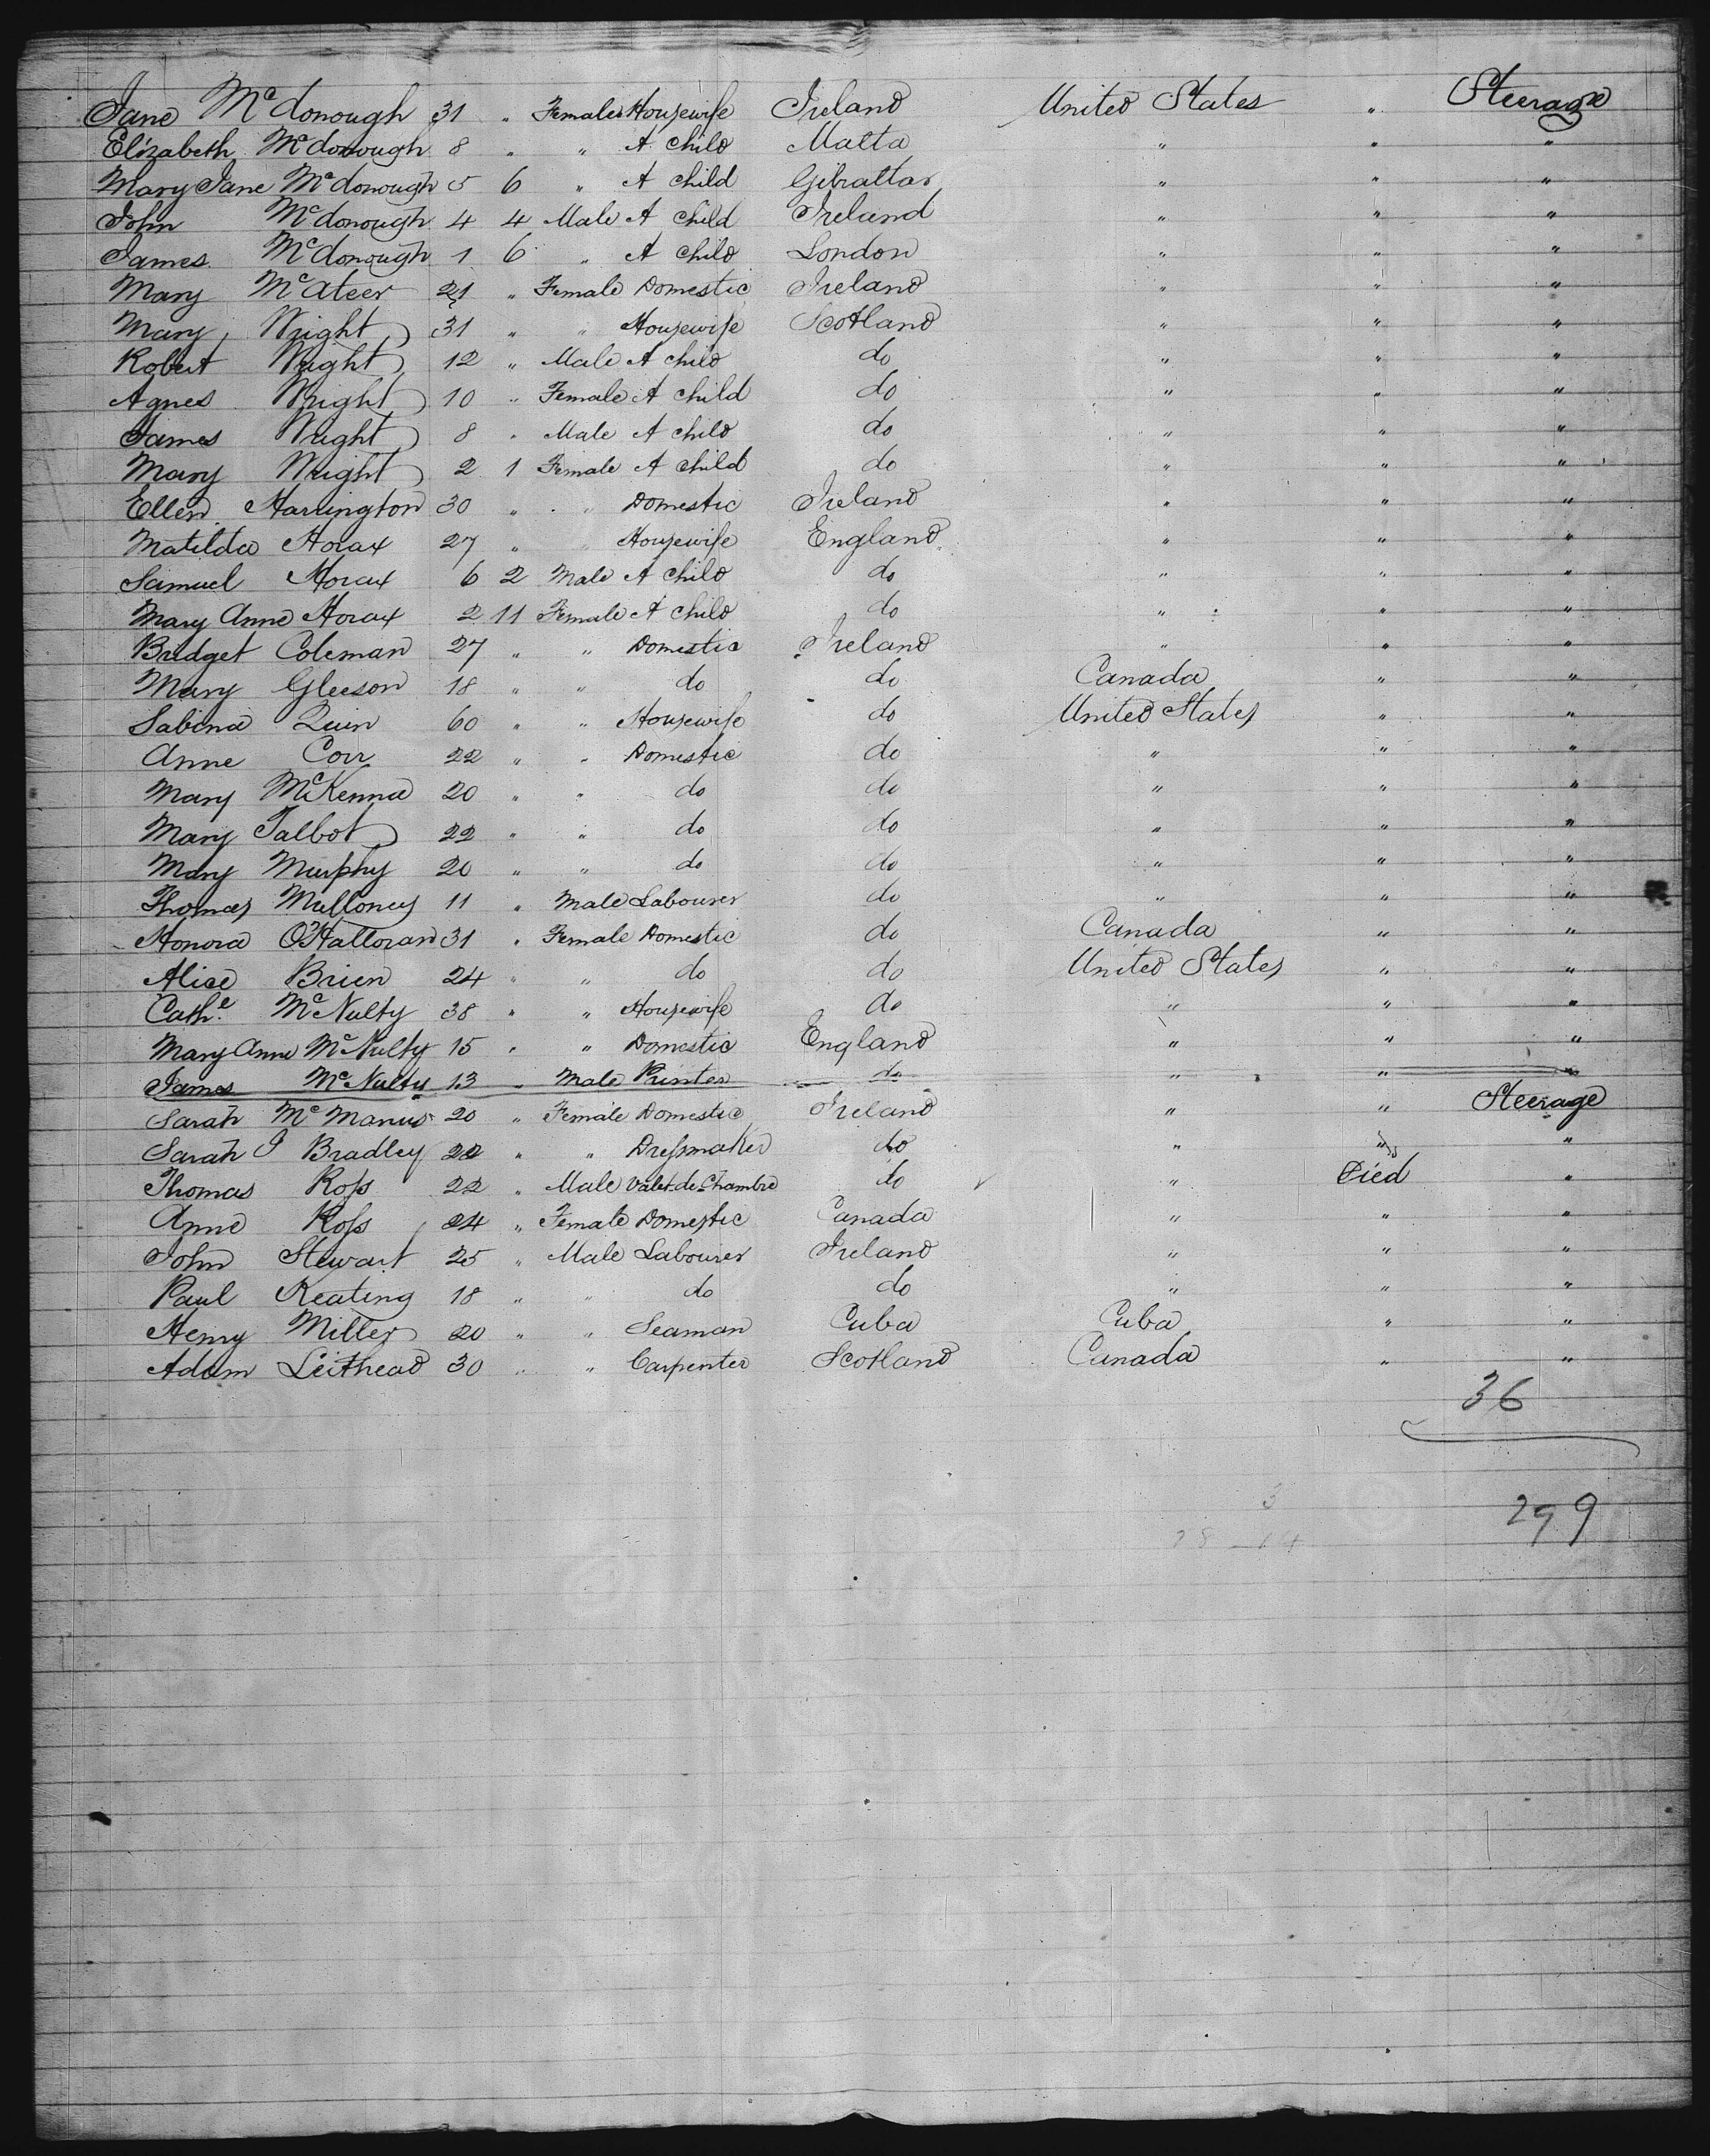 Jane McDonough 31 " Female Housewife Ireland United States " Steerage
Elizabeth McDonough 8 " " A child Malta " " "
Mary Jane McDonough 5 6 " A child Gibraltar " " "
John McDonough 4 4 Male A child Ireland " " "
James McDonough 1 6 " A child London " " "
Mary McAteer 21 " Female Domestic Ireland " " "
Mary Wright 31 " " Housewife Scotland " " "
Robert Wright 12 " Male A child do " " "
Agnes Wright 10 " Female A child do " " "
James Wright 8 " Male A child do " " "
Mary Wright 2 1 Female A child do " " "
Ellen Harrington 30 " " Domestic Ireland " " "
Matilda Horax 27 " " Housewife England " " "
Samuel Horax 6 2 Male A child do " " "
Mary Anne Horax 2 11 Female A child do " " "
Bridget Coleman 27 " " Domestic Ireland " " "
Mary Gleeson 18 " " do do Canada " "
Sabina Quin 60 " " Housewife do United States " "
Anne Corr 22 " " Domestic do " " "
Mary McKenna 20 " " do do " " "
Mary Talbot 22 " " do do " " "
Mary Murphy 20 " " do do " " "
Thomas Mulloney 11 " Male Labourer do " " "
Honora O'Halloran 31 " Female Domestic do Canada " "
Alice Brien 24 " " do do United States " "
Cathe McNulty 38 " " Housewife do " " "
Mary Anne McNulty 15 " " Domestic England " " "
James McNulty 13 " Male Printer do " " "
Sarah McManus 20 " Female Domestic Ireland " " Steerage
Sarah J Bradley 22 " " Dressmaker do " " "
Thomas Ross 22 " Male Valet-de-Chambre do " Died "
Anne Ross 24 " Female Domestic Canada " " "
John Stewart 25 " Male Labourer Ireland " " "
Paul Keating 18 " " do do " " "
Henry Miller 20 " " Seaman Cuba Cuba " "
Adam Leithead 30 " " Carpenter Scotland Canada " "
36
299